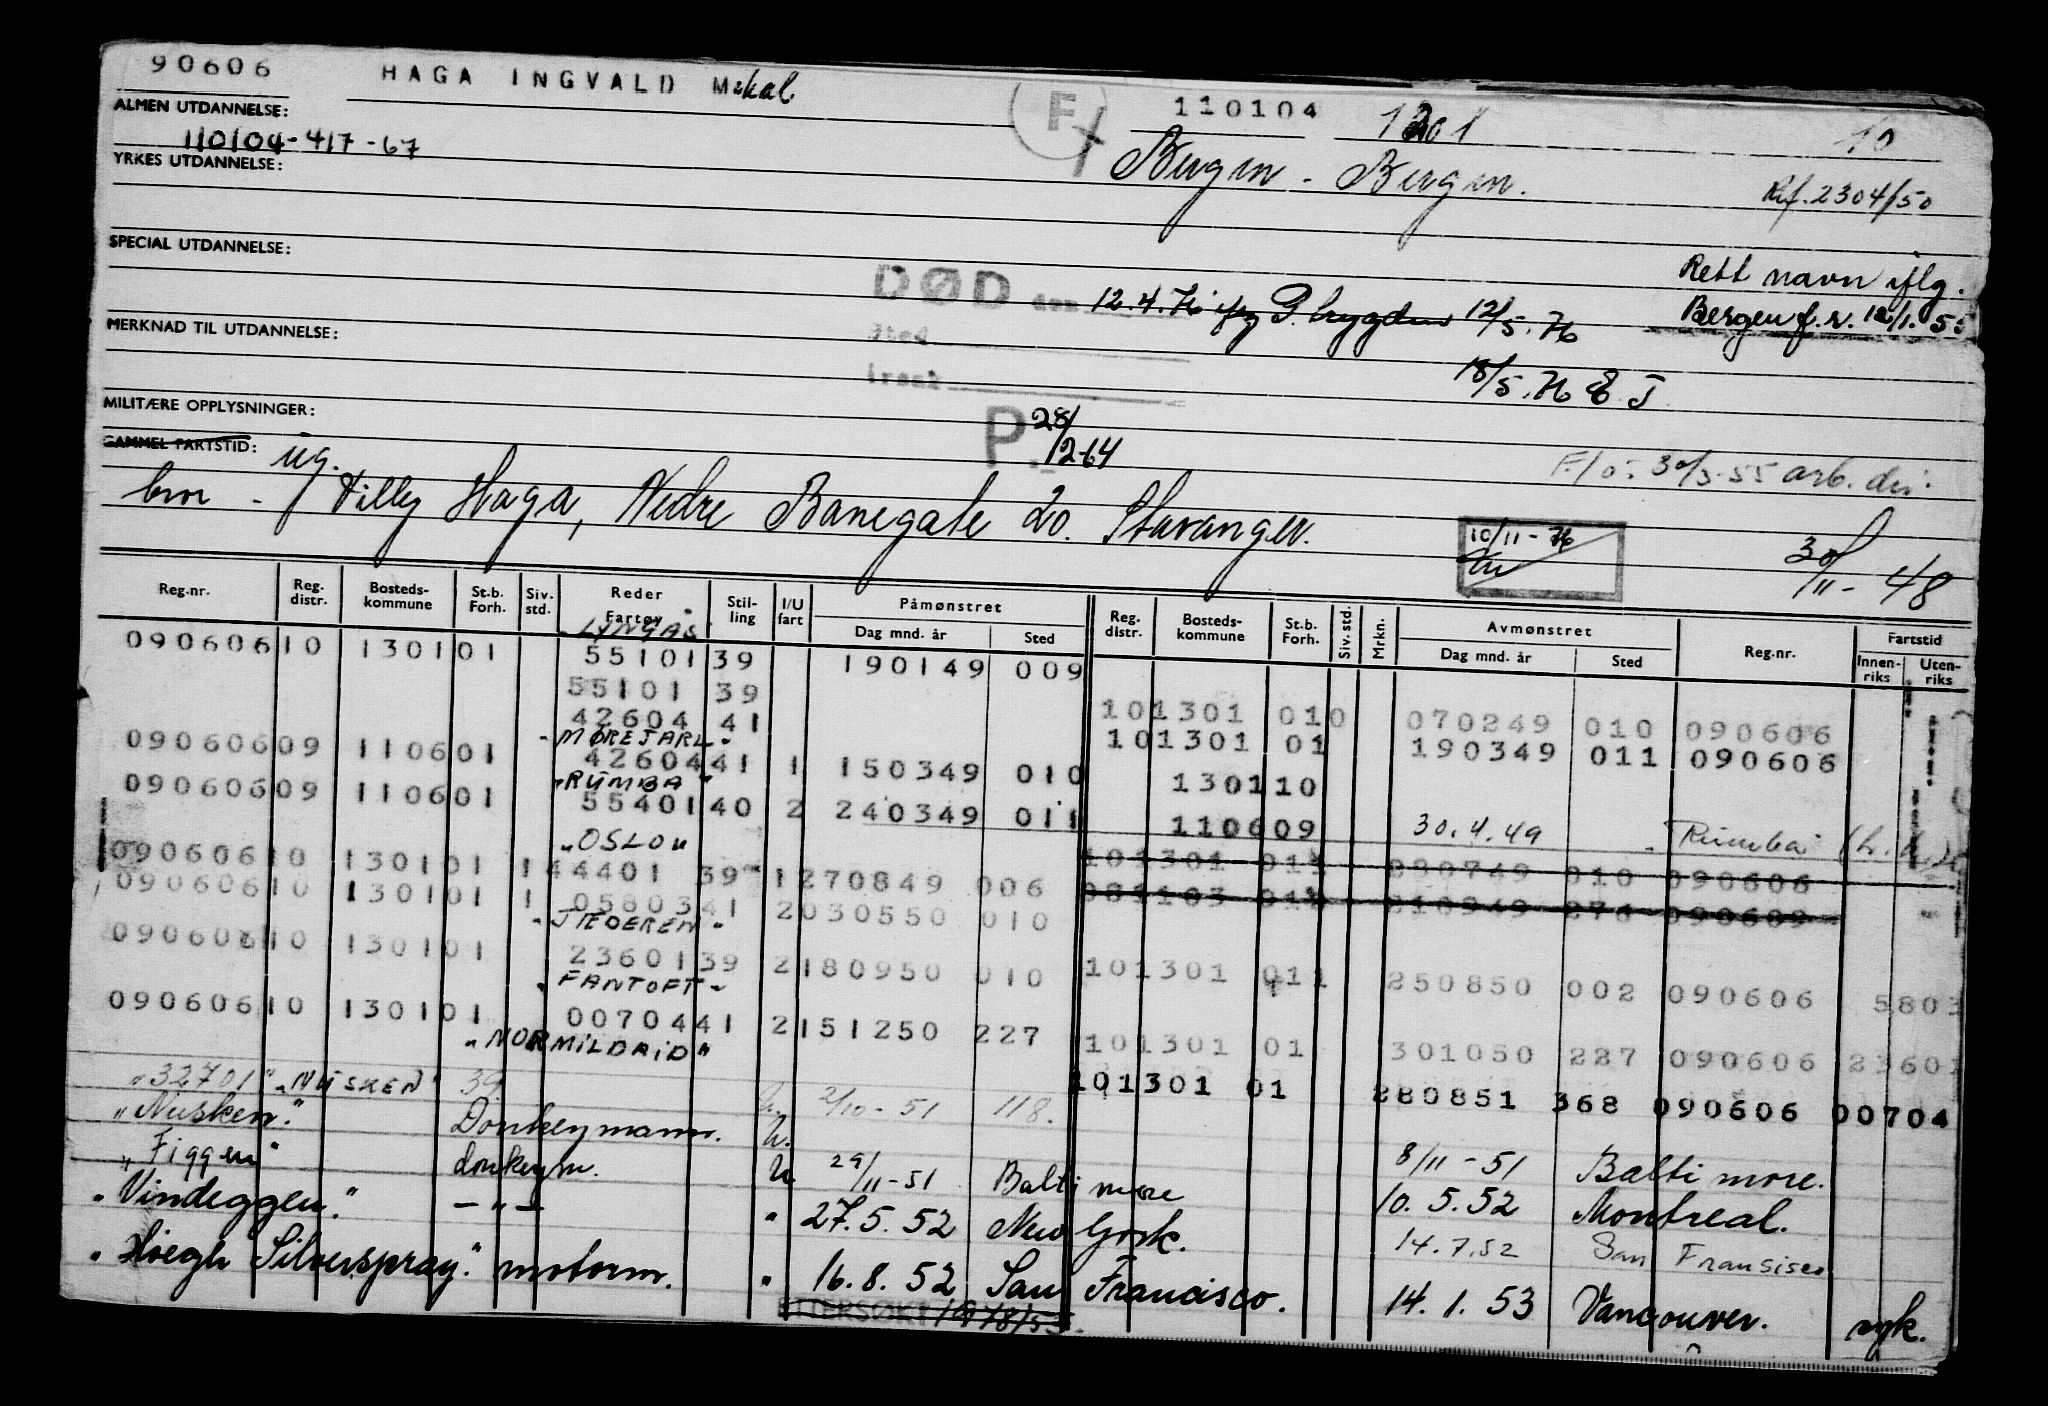 90606 HAGA INGVALD Mekal. F 110104 1301 10
ALMEN UTDANNELSE:
110104-417-67
Bergen - Bergen.
YRKES UTDANNELSE:
Rf. 2304/50
SPECIAL UTDANNELSE:
Rett navn iflg.
DØD den 12.4.76 12/5.76
Bergen f.r. 12/1.55
MERKNAD TIL UTDANNELSE:
Sted
Årsak
18/5.76 E J
MILITÆRE OPPLYSNINGER:
P. 28/12-64
GAMMEL FARTSTID: ug.
F/o: 30/3-55 arb. dir.
bror - Villy Haga, Nedre Banegate 20. Stavanger.
10/11-76
30/11-48
Reg.nr. Reg. distr. Bostedskommune St.b. Forh. Siv. std. Reder Fartøy Stilling I/U fart Påmønstret Dag mnd. år Sted Reg. distr. Bostedskommune St.b. Forh. Siv. std. Mrkn. Avmønstret Dag mnd. år Sted Reg.nr. Fartstid Innenriks Utenriks
"LYNGÅS"
090606 10 1301 01 55101 39 190149 009
55101 39 10 1301 010 070249 010 090606
42604 41 10 1301 01 190349 011 090606
"MØREJARL"
090606 09 1106 01 42604 41 1 150349 010 1301 10
"RUMBA"
090606 09 1106 01 55401 40 2 240349 011 1106 09 30.4.49 "Rumba"
"OSLO"
090606 10 1301 01 1 44401 39 1 270849 006 10 1301 011 010 090606
090606 10 1301 01 1 05803 41 2 030550 010
"JÆDEREN"
090606 10 1301 01 23601 39 2 180950 010 10 1301 011 250850 002 090606 5803
"FANTOFT"
090606 10 1301 01 00704 41 2 151250 227 10 1301 01 301050 227 090606 23601
"NORMILDAID"
"32701" "NUSKEN" 39 2/10-51 118. 10 1301 01 280851 368 090606 00704
"Nusken." Donkeymann. U. 8/11-51 Baltimore.
"Figgen" donkeym. U 29/11-51 Baltimore 10.5.52 Montreal.
"Vindeggen." — " — " 27.5.52 New York. 14.7.52 San Fransisco
"Høegh Silverspray." motorm. " 16.8.52 San Francisco. 14.1.53 Vancouver. syk.
ETTERSØKT 1978/53.